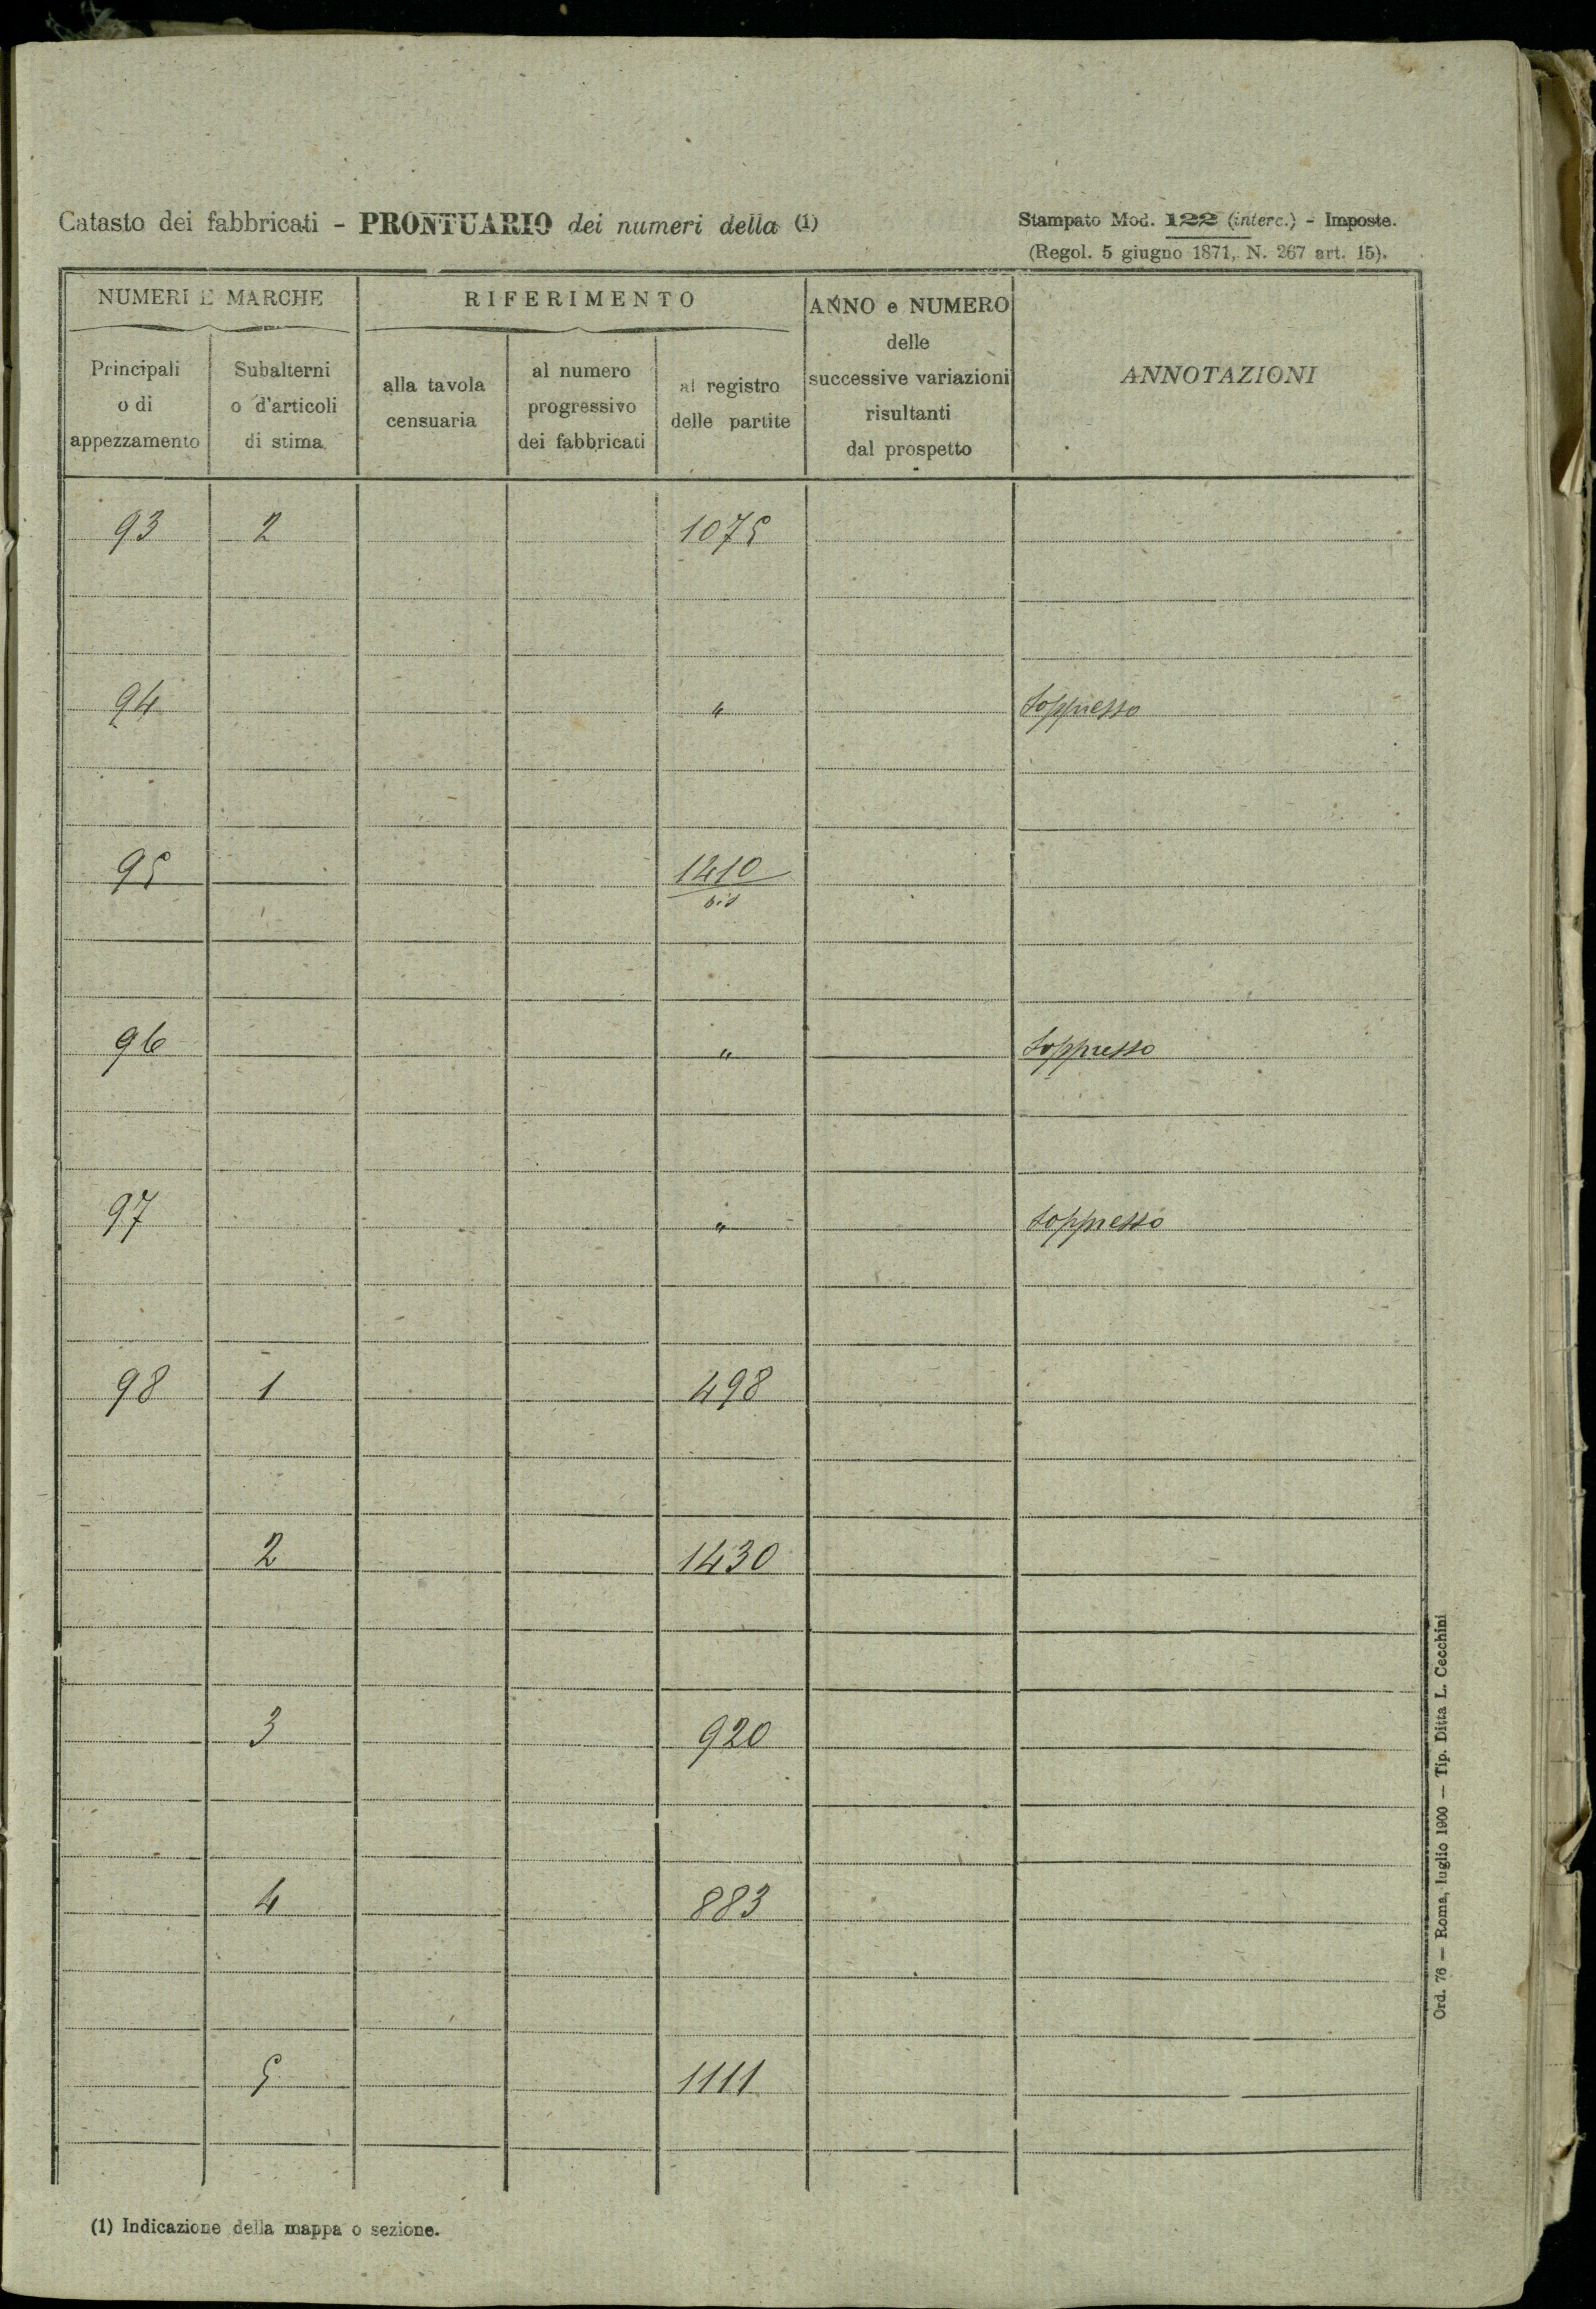 Catasto dei fabbricati - PRONTUARIO dei numeri della (1)
Stampato Mod. 122 (interc.) - Imposte.
(Regol. 5 giugno 1871, N. 267 art. 15).
NUMERI E MARCHE
RIFERIMENTO
ANNO e NUMERO
delle
successive variazioni
risultanti
dal prospetto
ANNOTAZIONI
Principali
o di
appezzamento
Subalterni
o d'articoli
di stima
alla tavola
censuaria
al numero
progressivo
dei fabbricati
al registro
delle partite
93 2 1075
94 " Soppresso
95 1410
bis
96 " Soppresso
97 " Soppresso
98 1 498
2 1430
3 920
4 883
5 1111
(1) Indicazione della mappa o sezione.
Ord. 76 — Roma, luglio 1900 — Tip. Ditta L. Cecchini